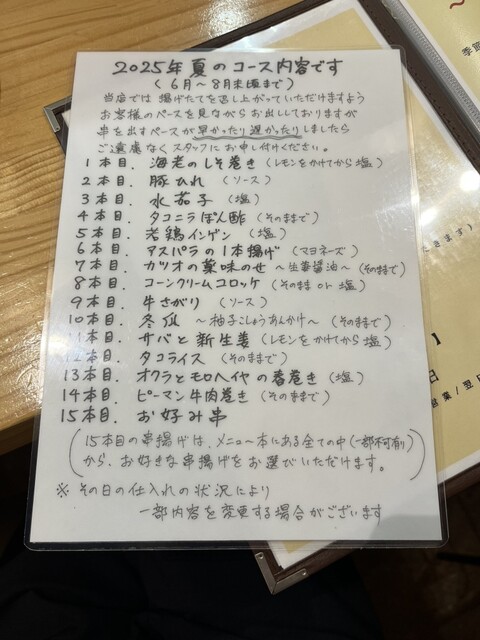 2025年 夏のコース内容です
(6月〜8月末頃まで)
当店では揚げたてを召し上がっていただけますよう
お客様のペースを見ながらお出ししておりますが
串を出すペースが早かったり遅かったりしましたら
ご遠慮なくスタッフにお申し付けください。
1本目. 海老のしそ巻き (レモンをかけてから塩)
2本目. 豚ひれ (ソース)
3本目. 水茄子 (塩)
4本目. タコニラぽん酢 (そのままで)
5本目. 若鶏インゲン (塩)
6本目. アスパラの1本揚げ (マヨネーズ)
7本目. カツオの薬味のせ 〜生姜醤油〜 (そのままで)
8本目. コーンクリームコロッケ (そのまま or 塩)
9本目. 牛さがり (ソース)
10本目. 冬瓜 〜柚子こしょうあんかけ〜 (そのままで)
11本目. サバと新生姜 (レモンをかけてから塩)
12本目. タコライス (そのままで)
13本目. オクラとモロヘイヤの春巻き (塩)
14本目. ピーマン牛肉巻き (そのままで)
15本目. お好み串
(15本目の串揚げは、メニュー本にある全ての中(一部不可有)
から、お好きな串揚げをお選びいただけます。)
※ その日の仕入れの状況により
一部内容を変更する場合がございます
季節
だきます)
】
日
営業/翌日